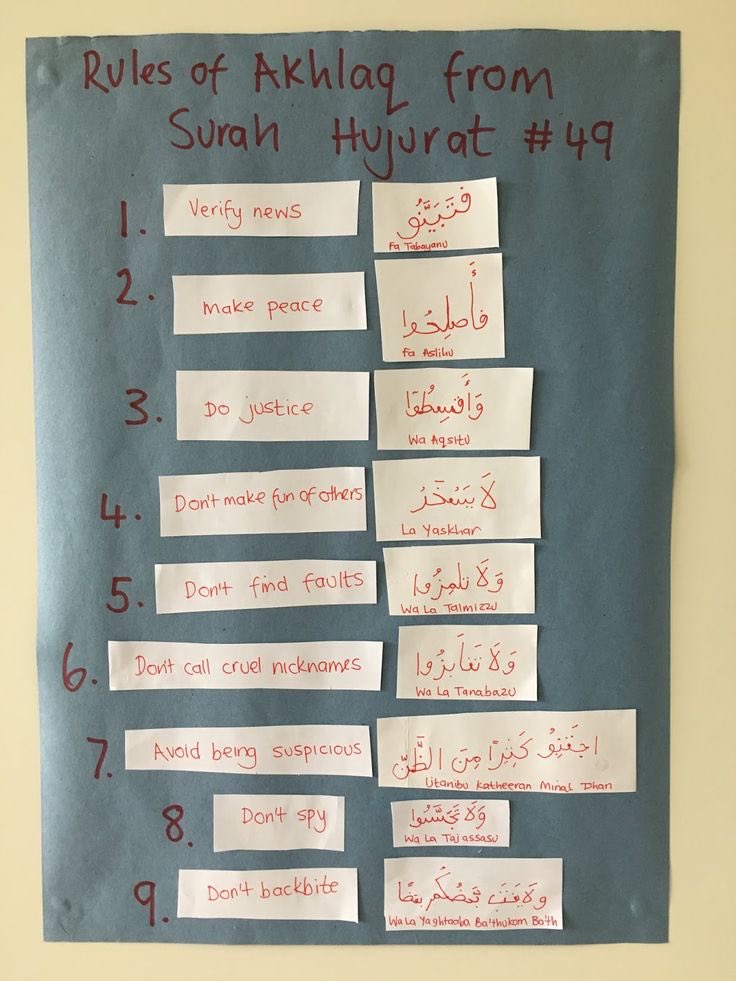 Rules of Akhlaq from
Surah Hujurat #49
1. Verify news
فَتَبَيَّنُو
Fa Tabayanu
2. make peace
فَأَصلِحُوا
Fa Aslihu
3. Do justice
وَأَقسِطُوا
Wa Aqsitu
4. Don't make fun of others
لَا يَسخَرُ
La Yaskhar
5. Don't find faults
وَلَا تَلمِزُوا
Wa La Talmizzu
6. Don't call cruel nicknames
وَلَا تَنَابَزُوا
Wa La Tanabazu
7. Avoid being suspicious
اجتَنِبُو كَثِيرًا مِنَ الظَّنِّ
Ijtanibu Katheeran Minal Dhan
8. Don't spy
وَلَا تَجَسَّسُوا
Wa La Tajassasu
9. Don't backbite
وَلَا يَغتَب بَّعضُكُم بَعضًا
Wa La Yaghtaaba Ba'thukom Ba'th